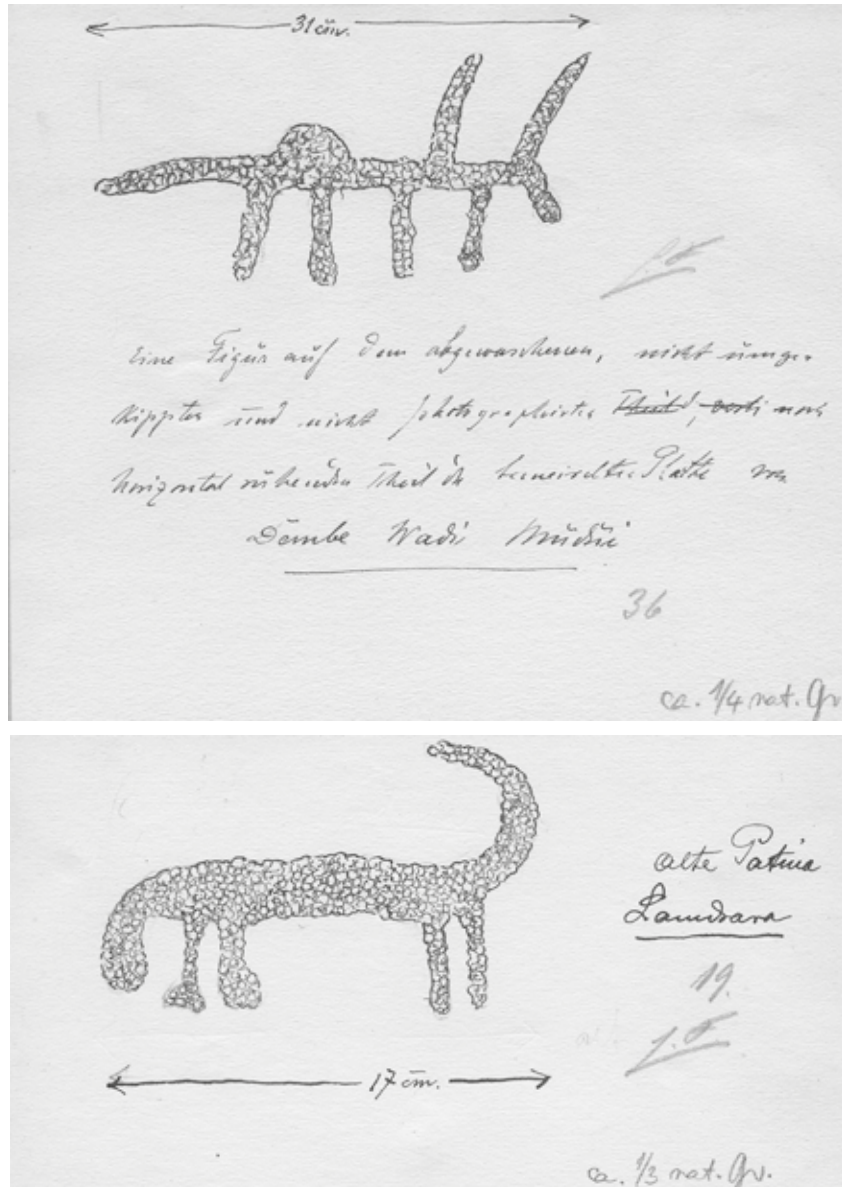 31 cm.
Eine Figur auf dem abgewaschenen, nicht umge-
kippten und nicht photographirten Theil, noch
horizontal ruhenden Theil der Platte von
Dembe Wadi
36
ca. 1/4 nat. Gr
alte Patina
19.
J. F.
17 cm.
ca. 1/3 nat. Gr.